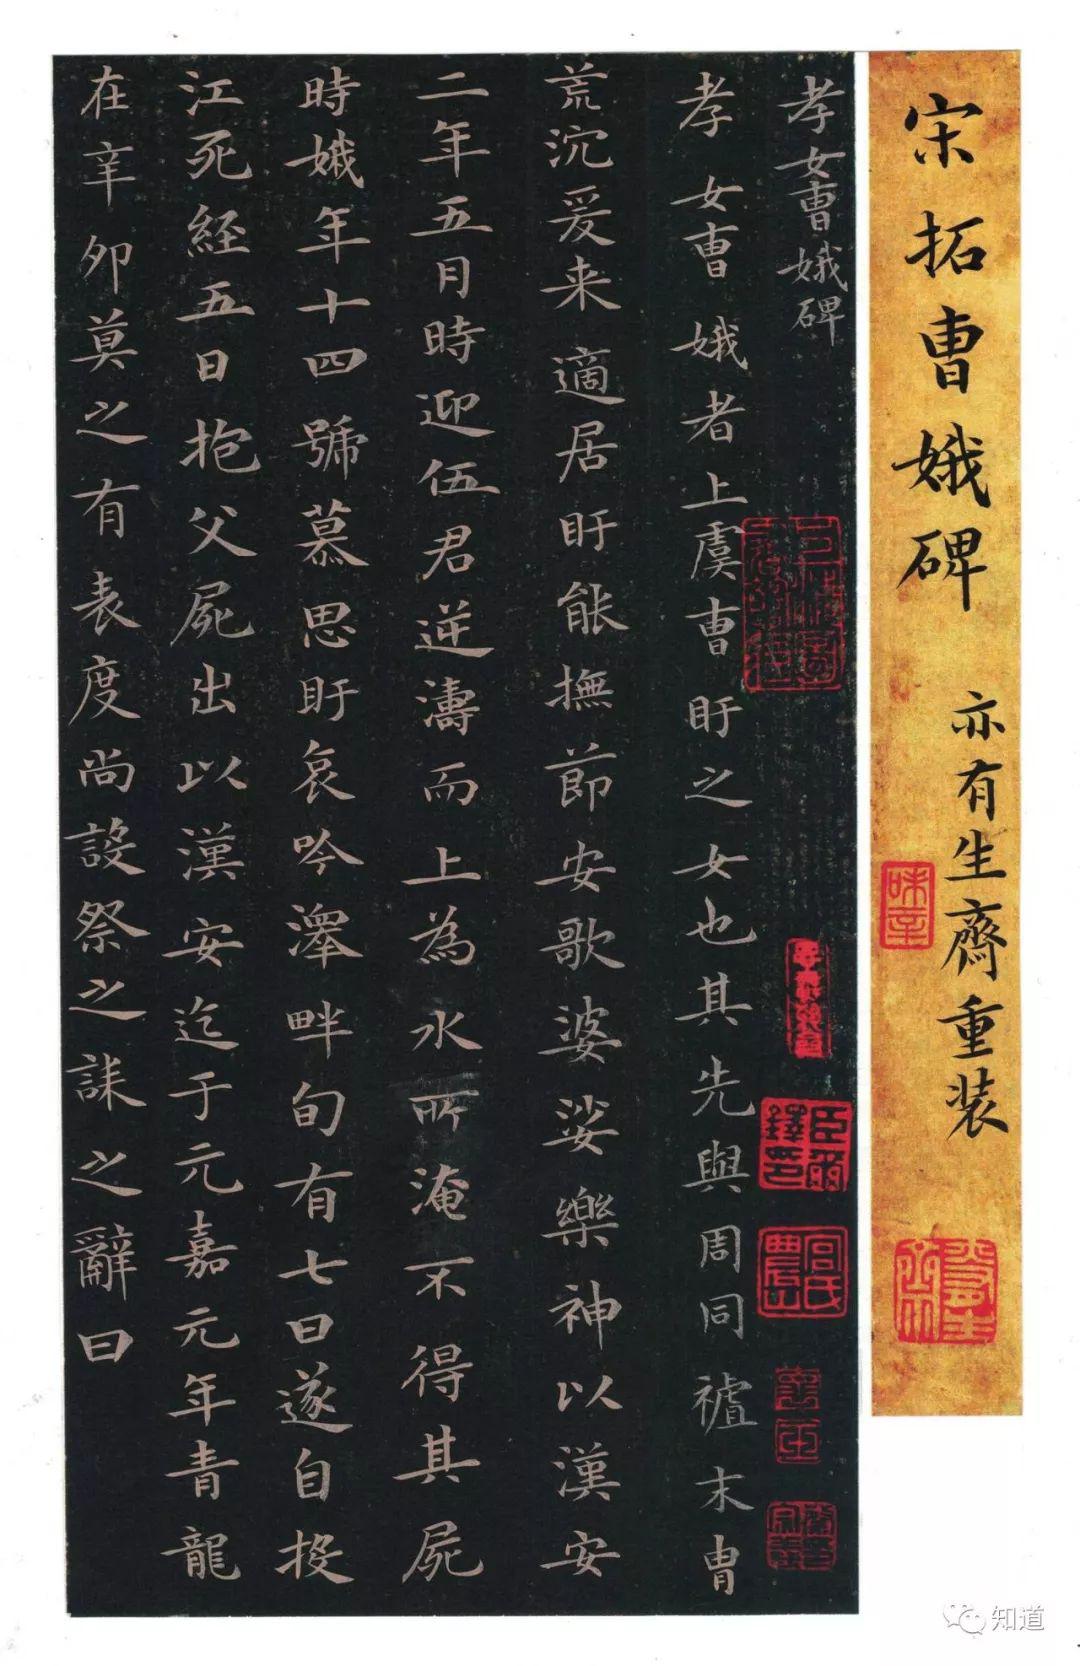 宋拓曹娥碑
亦有生齋重装
孝女曹娥碑
孝女曹娥者上虞曹盱之女也其先與周同禇末冑
荒沉爰来適居盱能撫節安歌婆娑樂神以漢安
二年五月時迎伍君逆濤而上為水所淹不得其屍
時娥年十四號慕思盱哀吟澤畔旬有七日遂自投
江死経五日抱父屍出以漢安迄于元嘉元年青龍
在辛卯莫之有表度尚設祭之誄之辭曰
臣爾
鐸印
宫氏
農山
知道